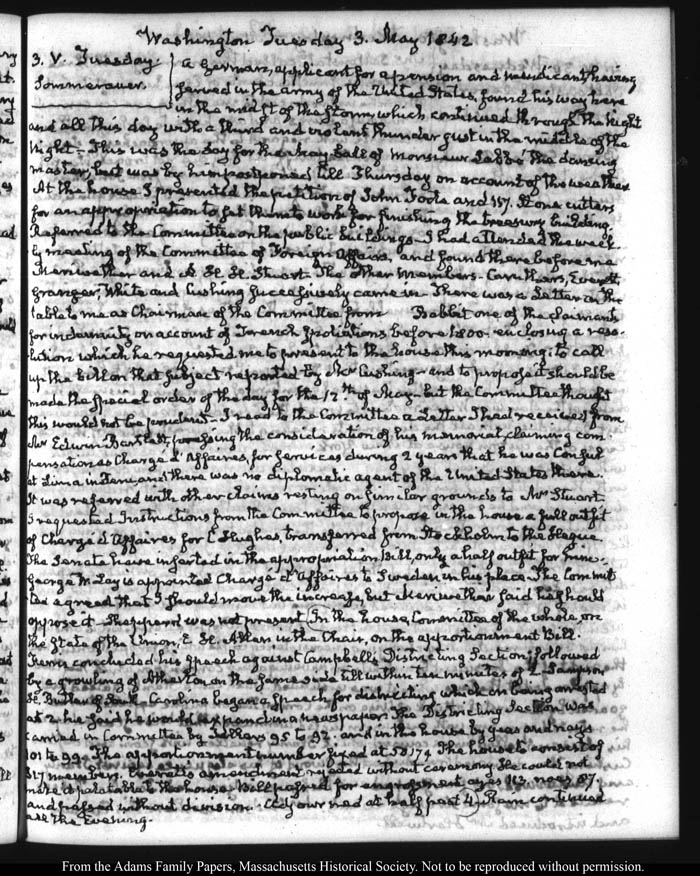 Washington Tuesday 3. May 1842
3. V. Tuesday. A German, applicant for a pension and mendicant having
Sommerauer. served in the army of the United States, found his way here
in the midst of the storm, which continued through the Night
and all this day with a third and violent thunder gust in the middle of the
Night. This was the day for the May ball of Monsieur Labbé the dancing
master, but was by him postponed till Thursday on account of the weather
At the house I presented the petition of John Foole and 157. Stone cutters
for an appropriation to set them to work for finishing the treasury building.
Referred to the Committee on the public buildings. I had attended the week
ly meeting of the Committee of Foreign Affairs, and found there before me
Meriwether and A. H. H. Stuart. The other members. Caruthers, Everett,
Granger, White and Cushing successively came in. There was a Letter on the
table to me as Chairman of the Committee from Babbit one of the claimants
for indemnity on account of French spoliations before 1800. enclosing a reso-
lution which he requested me to present to the house this morning; to call
up the bill on that subject reported by Mr Cushing. and to propose it should be
made the special order of the day for the 12th of May. but the Committee thought
this would not be prudent. I read to the Committee a Letter I had received from
Mr Edwin Bartlett pressing the consideration of his memorial, claiming com
pensation as Chargé d'Affaires, for services during 2 years that he was Consul
at Lima in Peru, and there was no diplomatic agent of the United States there.
It was referred with other claims resting on similar grounds to Mr Stuart.
I requested Instructions from the Committee to propose in the house a full outfit
of Chargé d'Affaires for C Hughes, transferred from Stockholm to the Hague.
The Senate have inserted in the appropriation Bill, only a half outfit for him.
George W Lay is appointed Chargé d'Affaires to Sweden in his place. The Commit
tee agreed that I should move the increase, but Meriwether said he should
oppose it. Shepperd was not present. In the house, Committee of the whole, on
the State of the Union, C. H. Atherton in the Chair, on the apportionment Bill.
concluded his speech against Campbell's Districting Section; followed
by a growling of Atherton on the same side till within ten minutes of 2. Sampson
H. Butler of South-Carolina began a speech for districting which on being arrested
at 2 he said he would expand in a newspaper. The Districting Section was
carried in Committee by Tellers 95 to 92. and in the house by yeas and nays
101 to 99. The apportionment number fixed at 50174 The house to consist of
317 members. Everett's amendment rejected without ceremony. He could not
make it palatable to the house. Bill passed for engrossment ayes 113. noes 87.
and passed without division. Adjourned at half past 4. Rain continued
all the Evening.
From the Adams Family Papers, Massachusetts Historical Society. Not to be reproduced without permission.